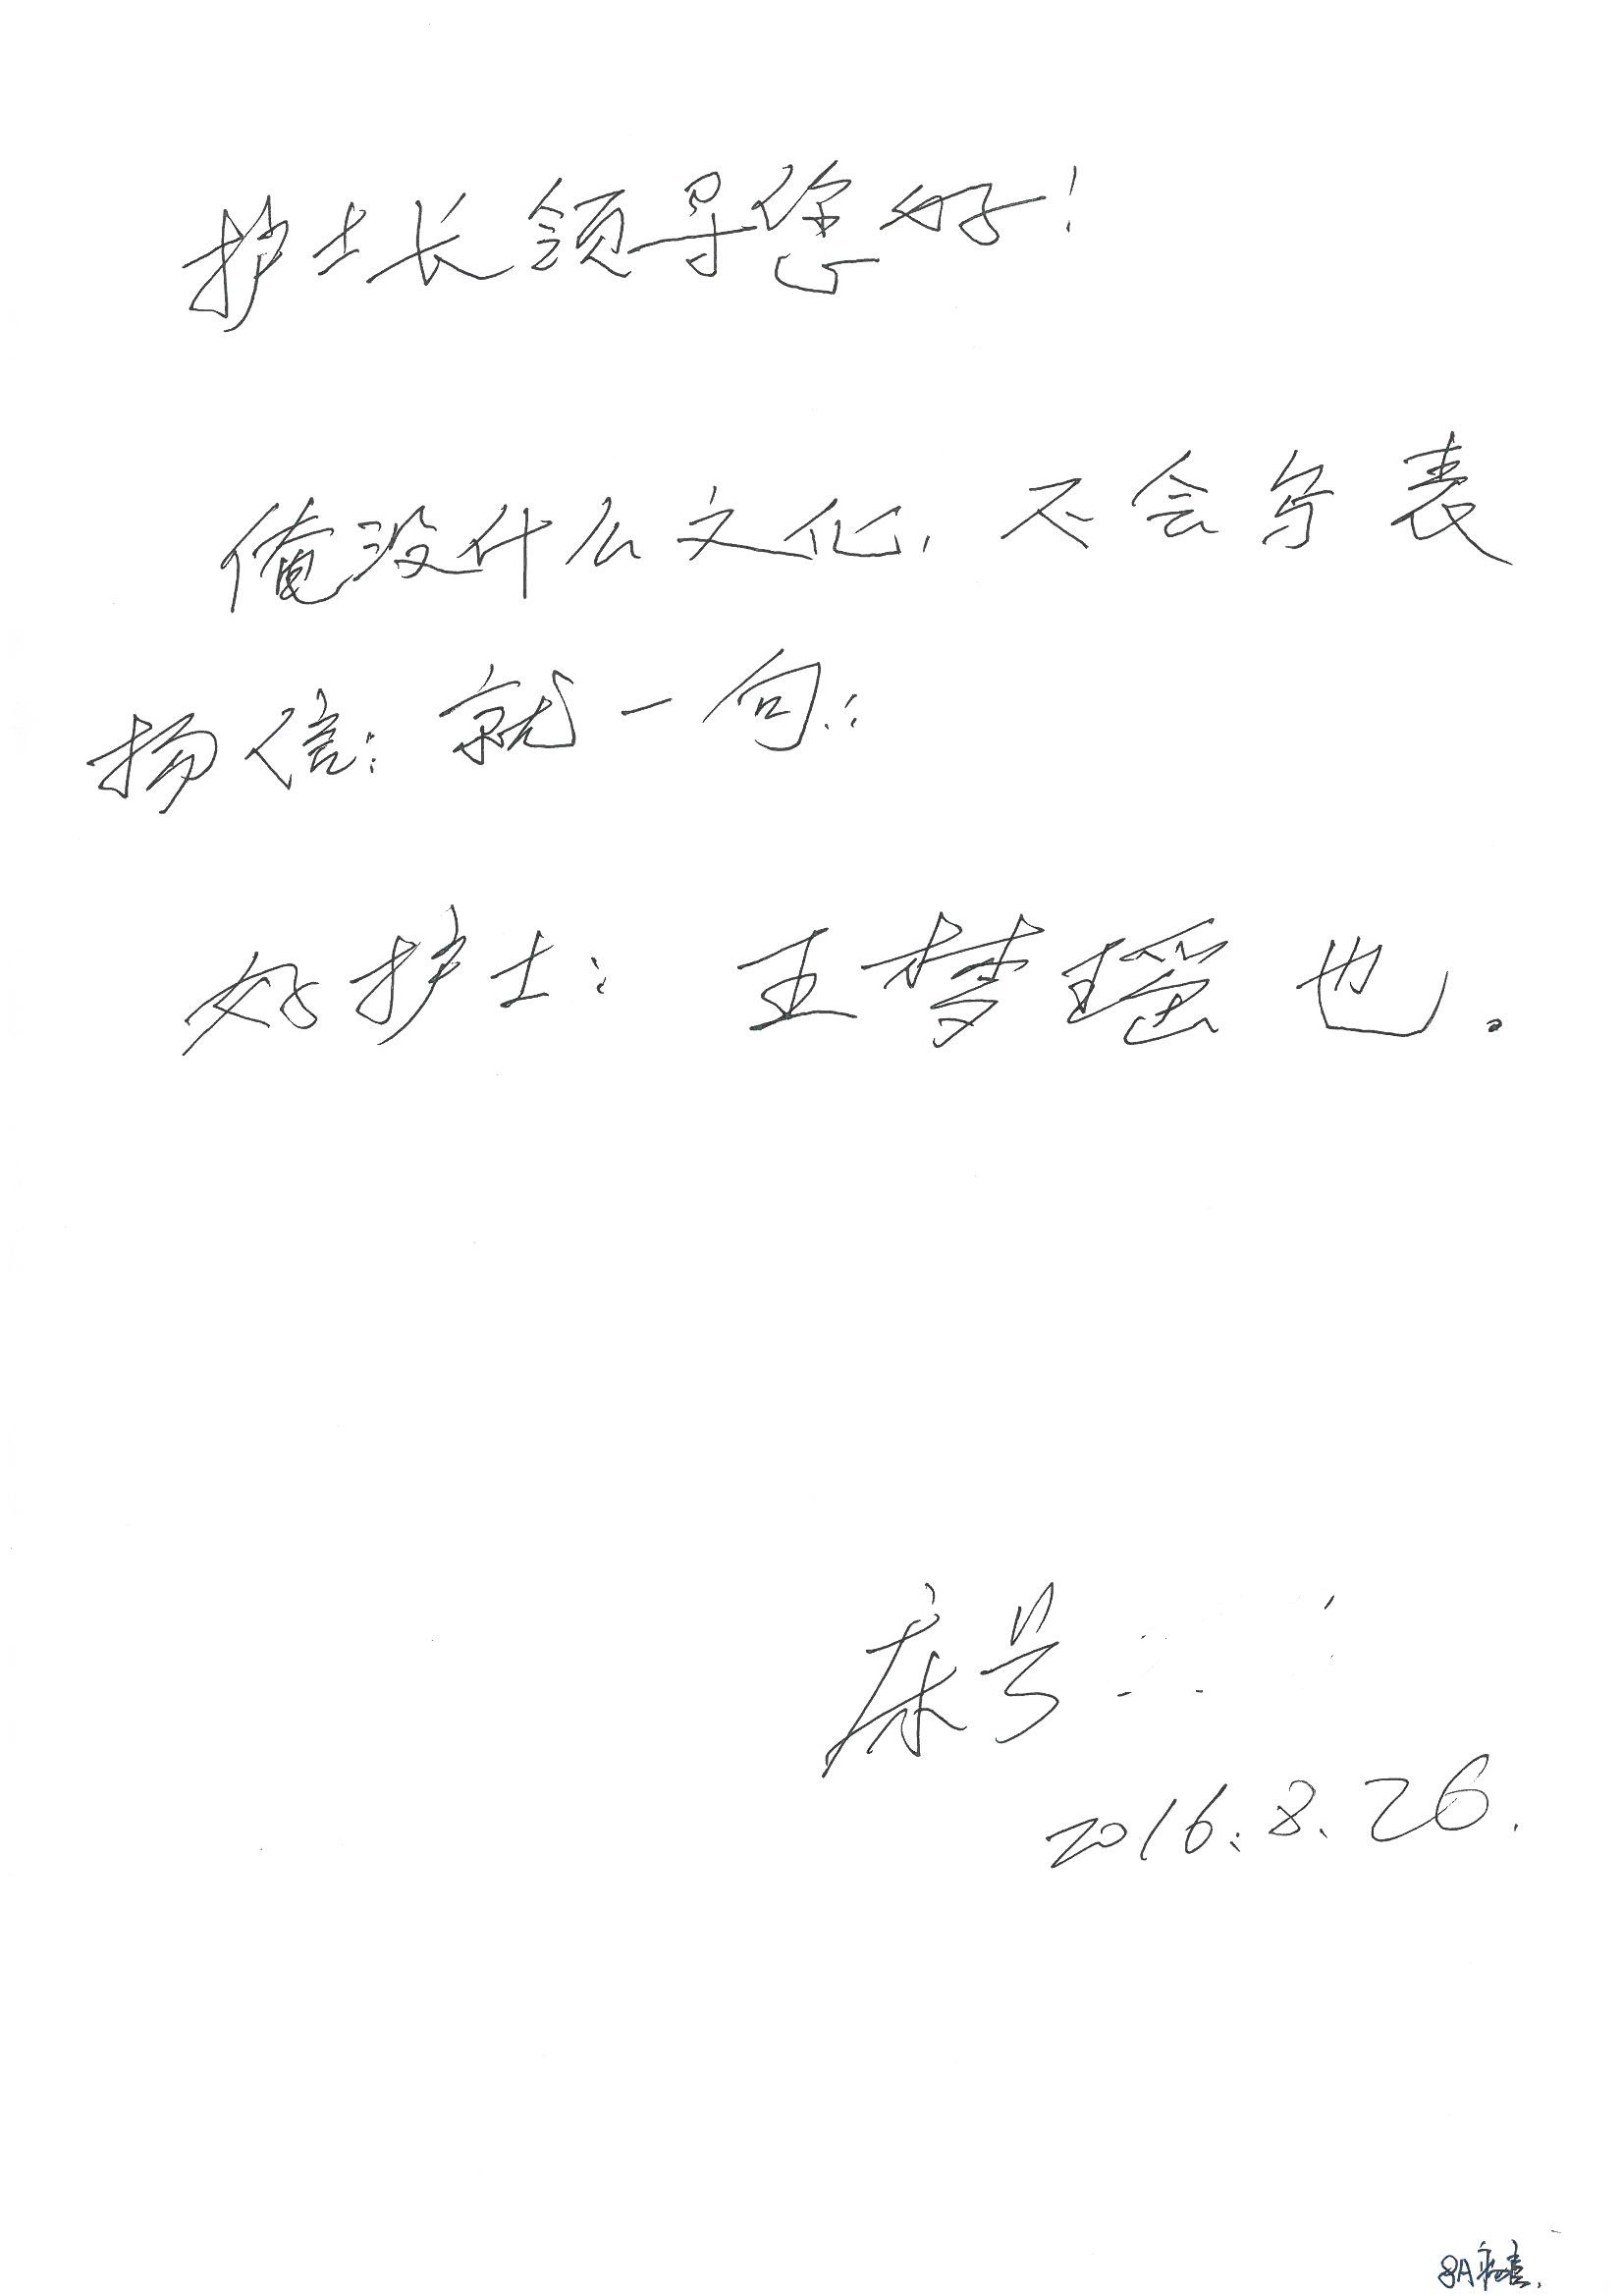 护士长领导您好！
俺没什么文化，不会写表
扬信：就一句：
好护士：王梦瑶也。
床号
2016.8.26.
8A